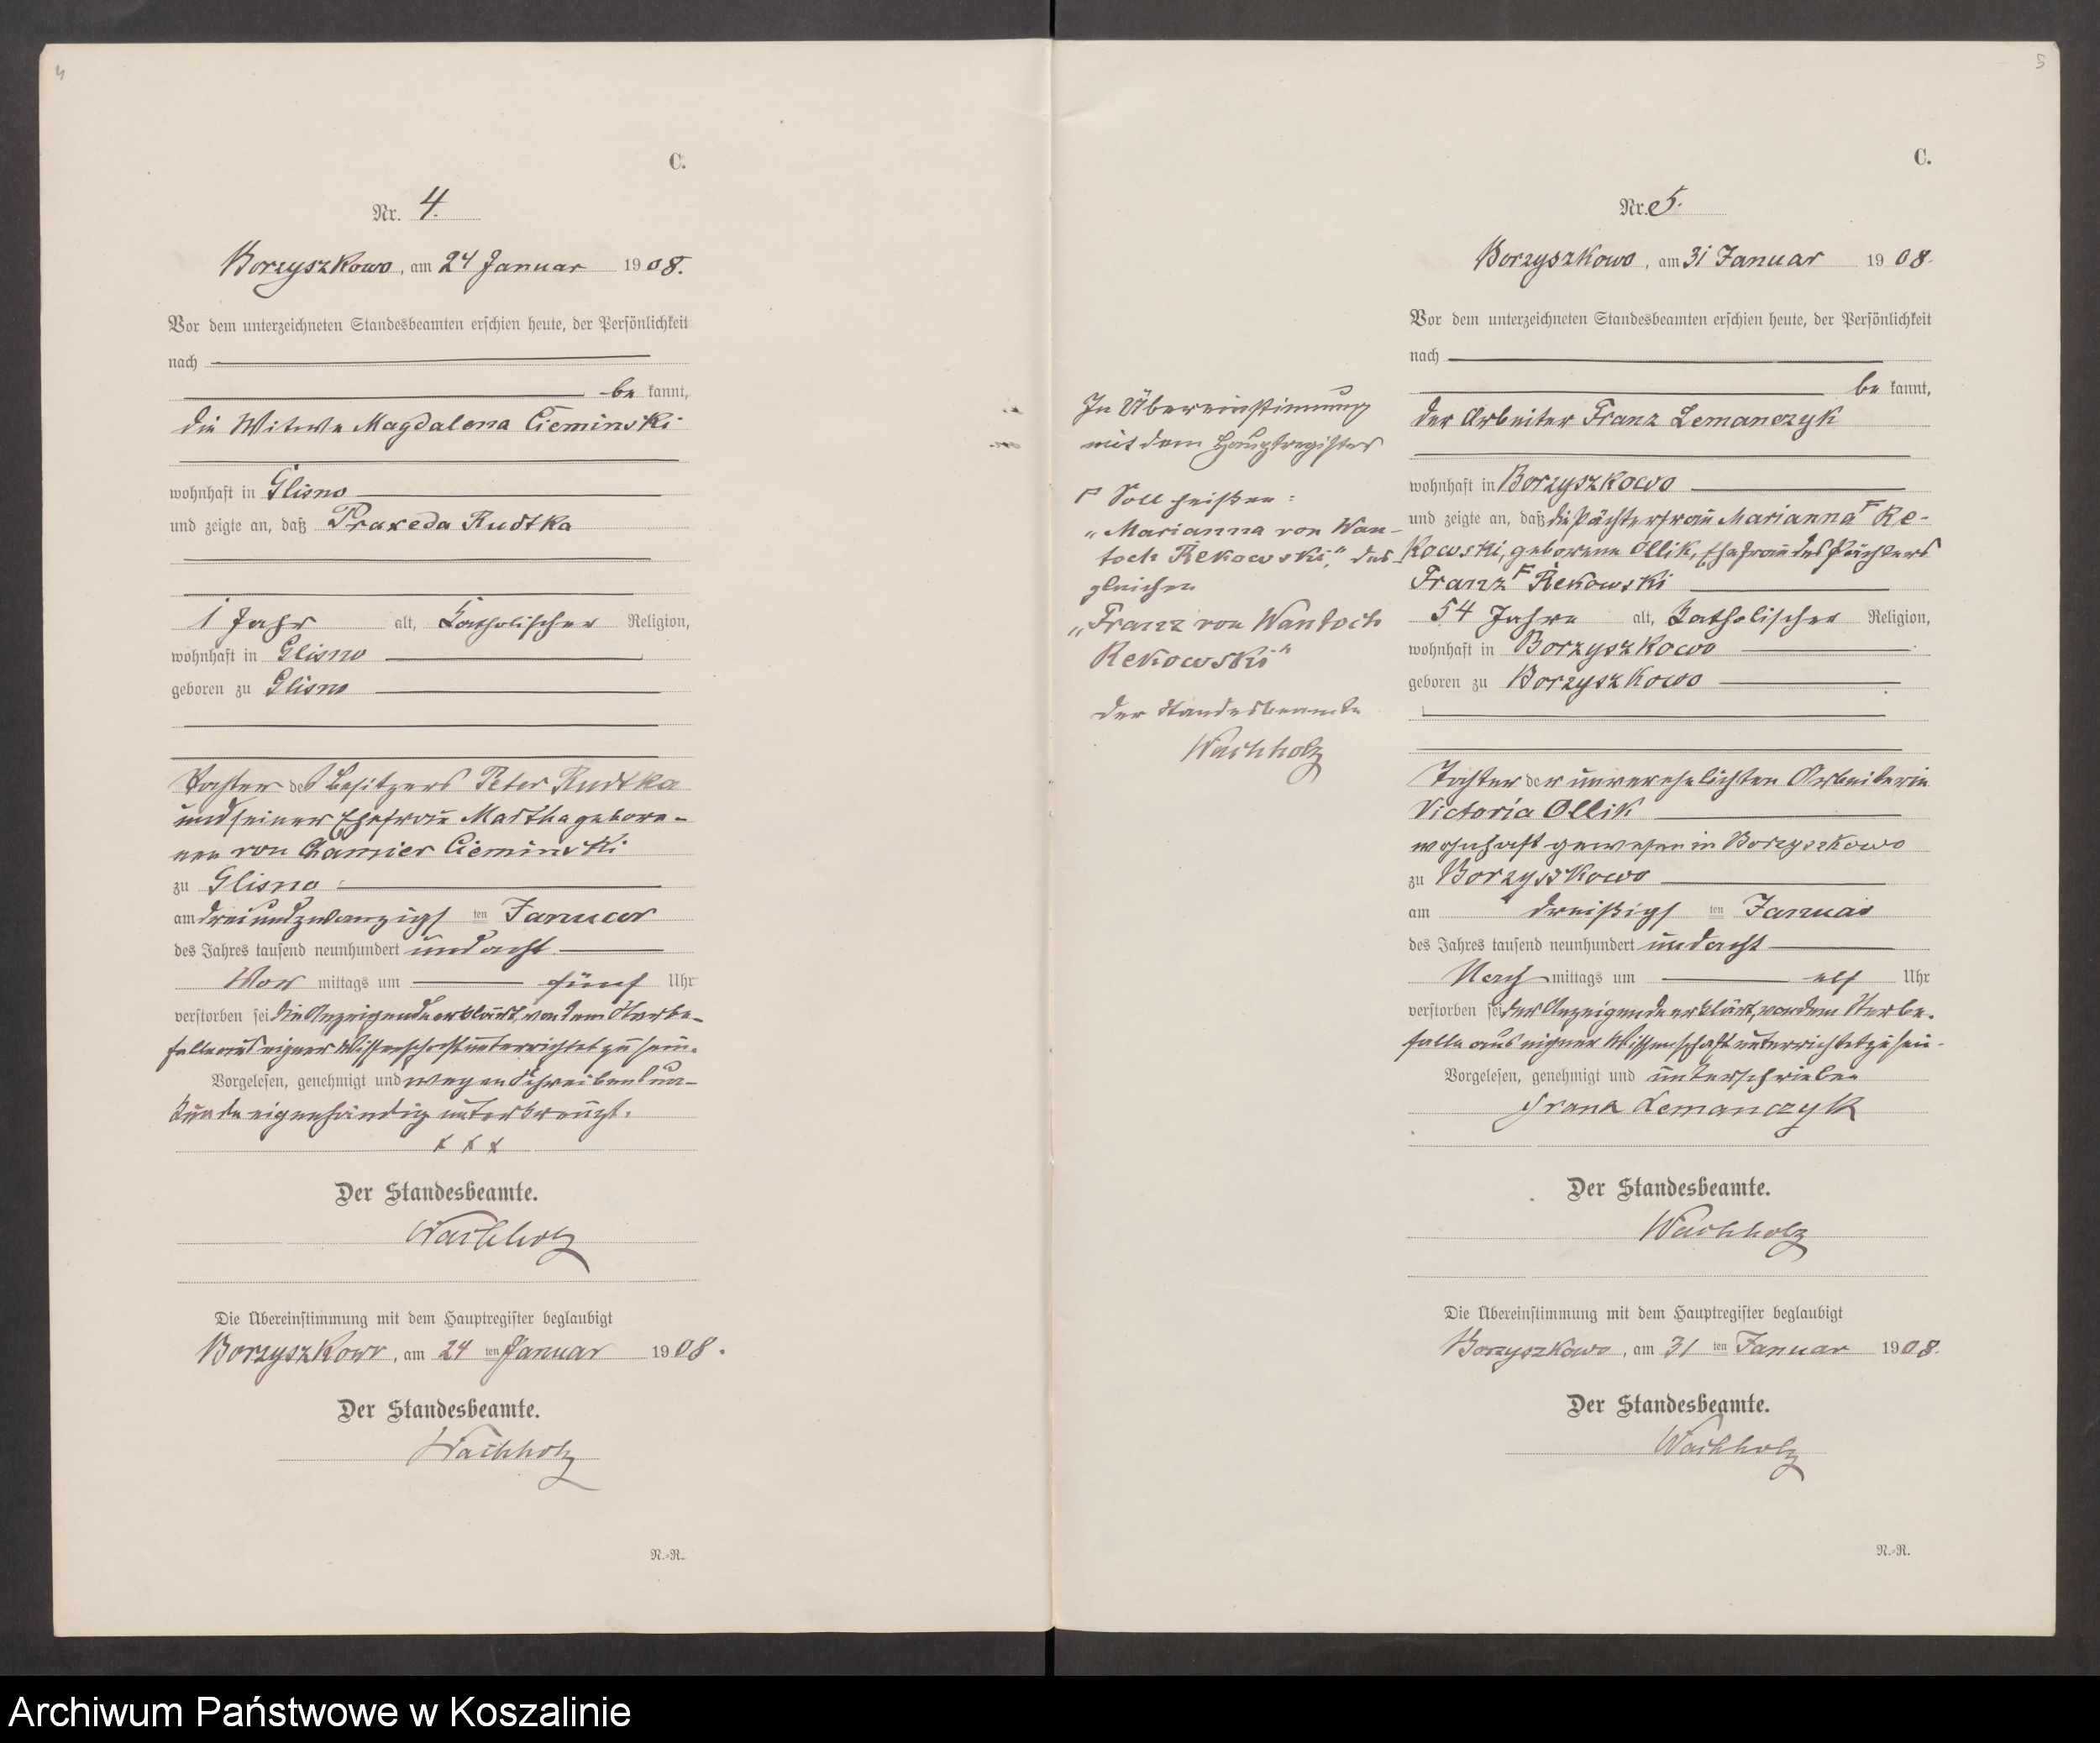 4
C.
Nr. 4.
Borzyszkowo, am 24 Januar 1908.
Vor dem unterzeichneten Standesbeamten erschien heute, der Persönlichkeit
nach
be kannt,
die Witwe Magdalena Cieminski
wohnhaft in Glisno
und zeigte an, daß Praxeda Rudtka
1 Jahr alt, Katholischer Religion,
wohnhaft in Glisno
geboren zu Glisno
Tochter des Besitzers Peter Rudtka
und seiner Ehefrau Martha gebore-
nen von Chamier Cieminski
zu Glisno
am dreiundzwanzigsten Januar
des Jahres tausend neunhundert und acht
Vor mittags um fünf Uhr
verstorben sei die Anzeigende erklärt, von dem Sterbe-
falle aus eigner Wissenschaft unterrichtet zu sein.
Vorgelesen, genehmigt und wegen Schreibensun-
kunde eigenhändig unterkreuzt.
x x x
Der Standesbeamte.
Wachholz
Die Übereinstimmung mit dem Hauptregister beglaubigt
Borzyszkowo, am 24 ten Januar 1908.
Der Standesbeamte.
Wachholz
N.-R.
5
C.
Nr. 5.
Borzyszkowo, am 31 Januar 1908.
Vor dem unterzeichneten Standesbeamten erschien heute, der Persönlichkeit
nach
be kannt,
der Arbeiter Franz Lemanczyk
wohnhaft in Borzyszkowo
und zeigte an, daß die Pächterfrau Marianna F Re-
kowski, geborene Ollik, Ehefrau des Pächters
Franz F Rekowski
54 Jahre alt, Katholischer Religion,
wohnhaft in Borzyszkowo
geboren zu Borzyszkowo
Tochter der unverehelichten Arbeiterin
Victoria Ollik
wohnhaft gewesen in Borzyszkowo
zu Borzyszkowo
am dreißigsten Januar
des Jahres tausend neunhundert und acht
Nach mittags um elf Uhr
verstorben sei der Anzeigende erklärt, von dem Sterbe-
falle aus eigner Wissenschaft unterrichtet zu sein.
Vorgelesen, genehmigt und unterschrieben
Franz Lemanczyk
Der Standesbeamte.
Wachholz
Die Übereinstimmung mit dem Hauptregister beglaubigt
Borzyszkowo, am 31 ten Januar 1908.
Der Standesbeamte.
Wachholz
N.-R.
In Übereinstimmung
mit dem Hauptregister
F Soll heißen:
„Marianna von Wan-
toch Rekowski", des-
gleichen
„Franz von Wantoch
Rekowski"
Der Standesbeamte
Wachholz
Archiwum Państwowe w Koszalinie